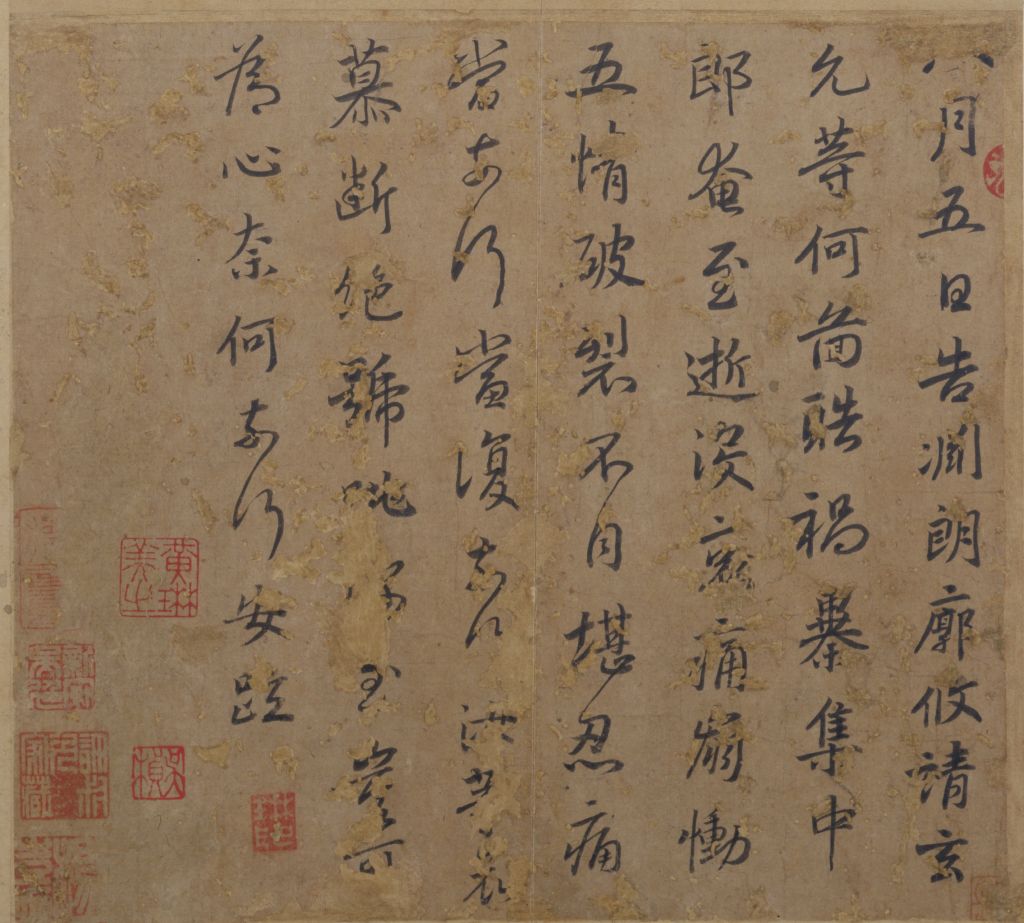 八月五日告淵朗廓攸靖玄
允等何圖酷禍暴集中
郎奄至逝沒哀痛崩慟
五情破裂不自堪忍痛
當奈何當復奈何汝等哀
慕斷絕號咷深至豈可
為心奈何奈何安疏
黃琳美之
吳楨